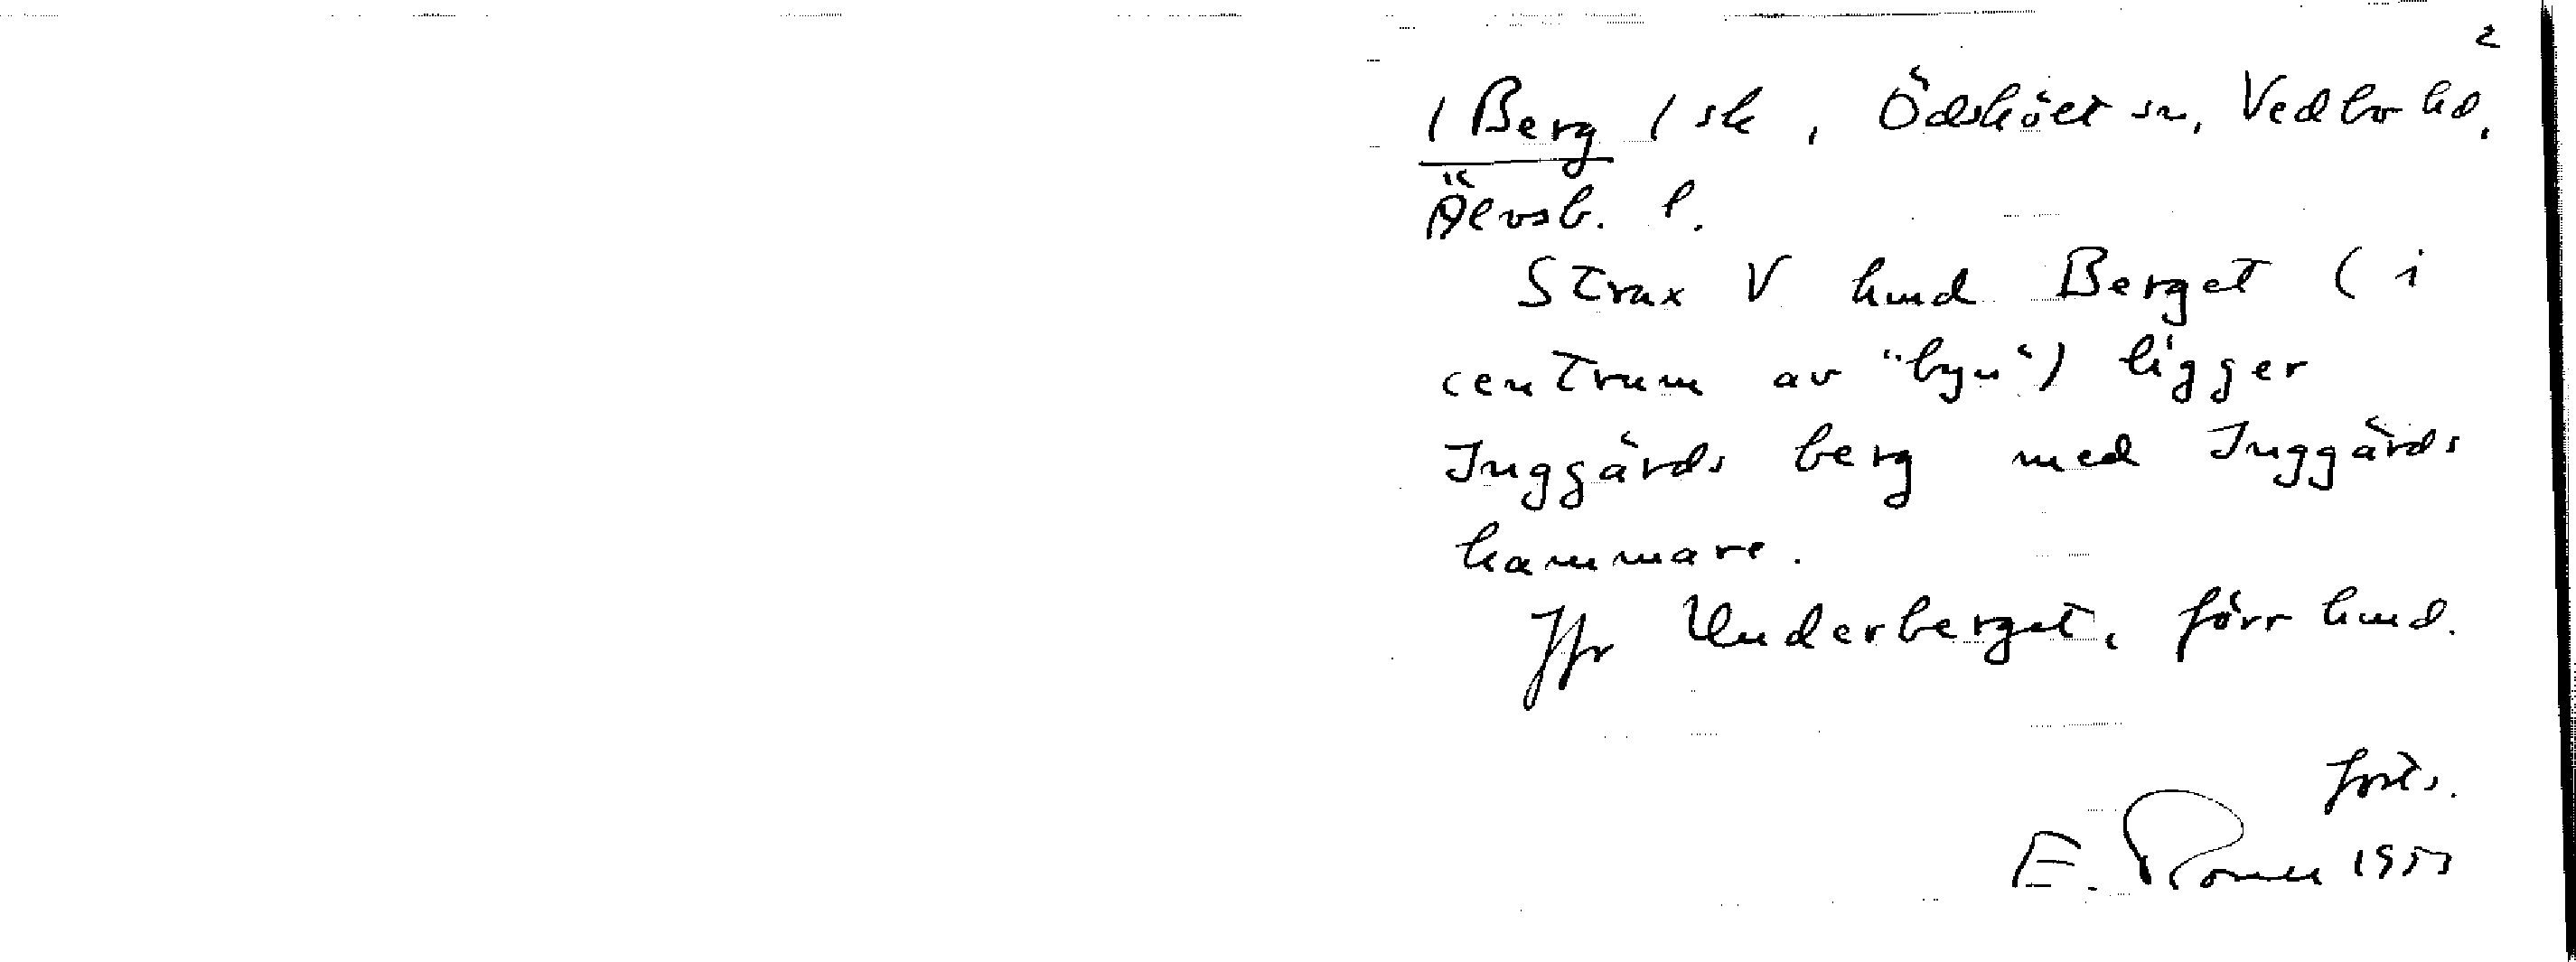 2
( Berg ) sk, Ödskölt sn, Vedbo hd,
Älvsb. l.
Strax V hmd Berget ( i
centrum av "byn") ligger
Inggårds berg med Inggårds
hammare.
Jfr Underberget, förr hmd.
forts.
E. 195